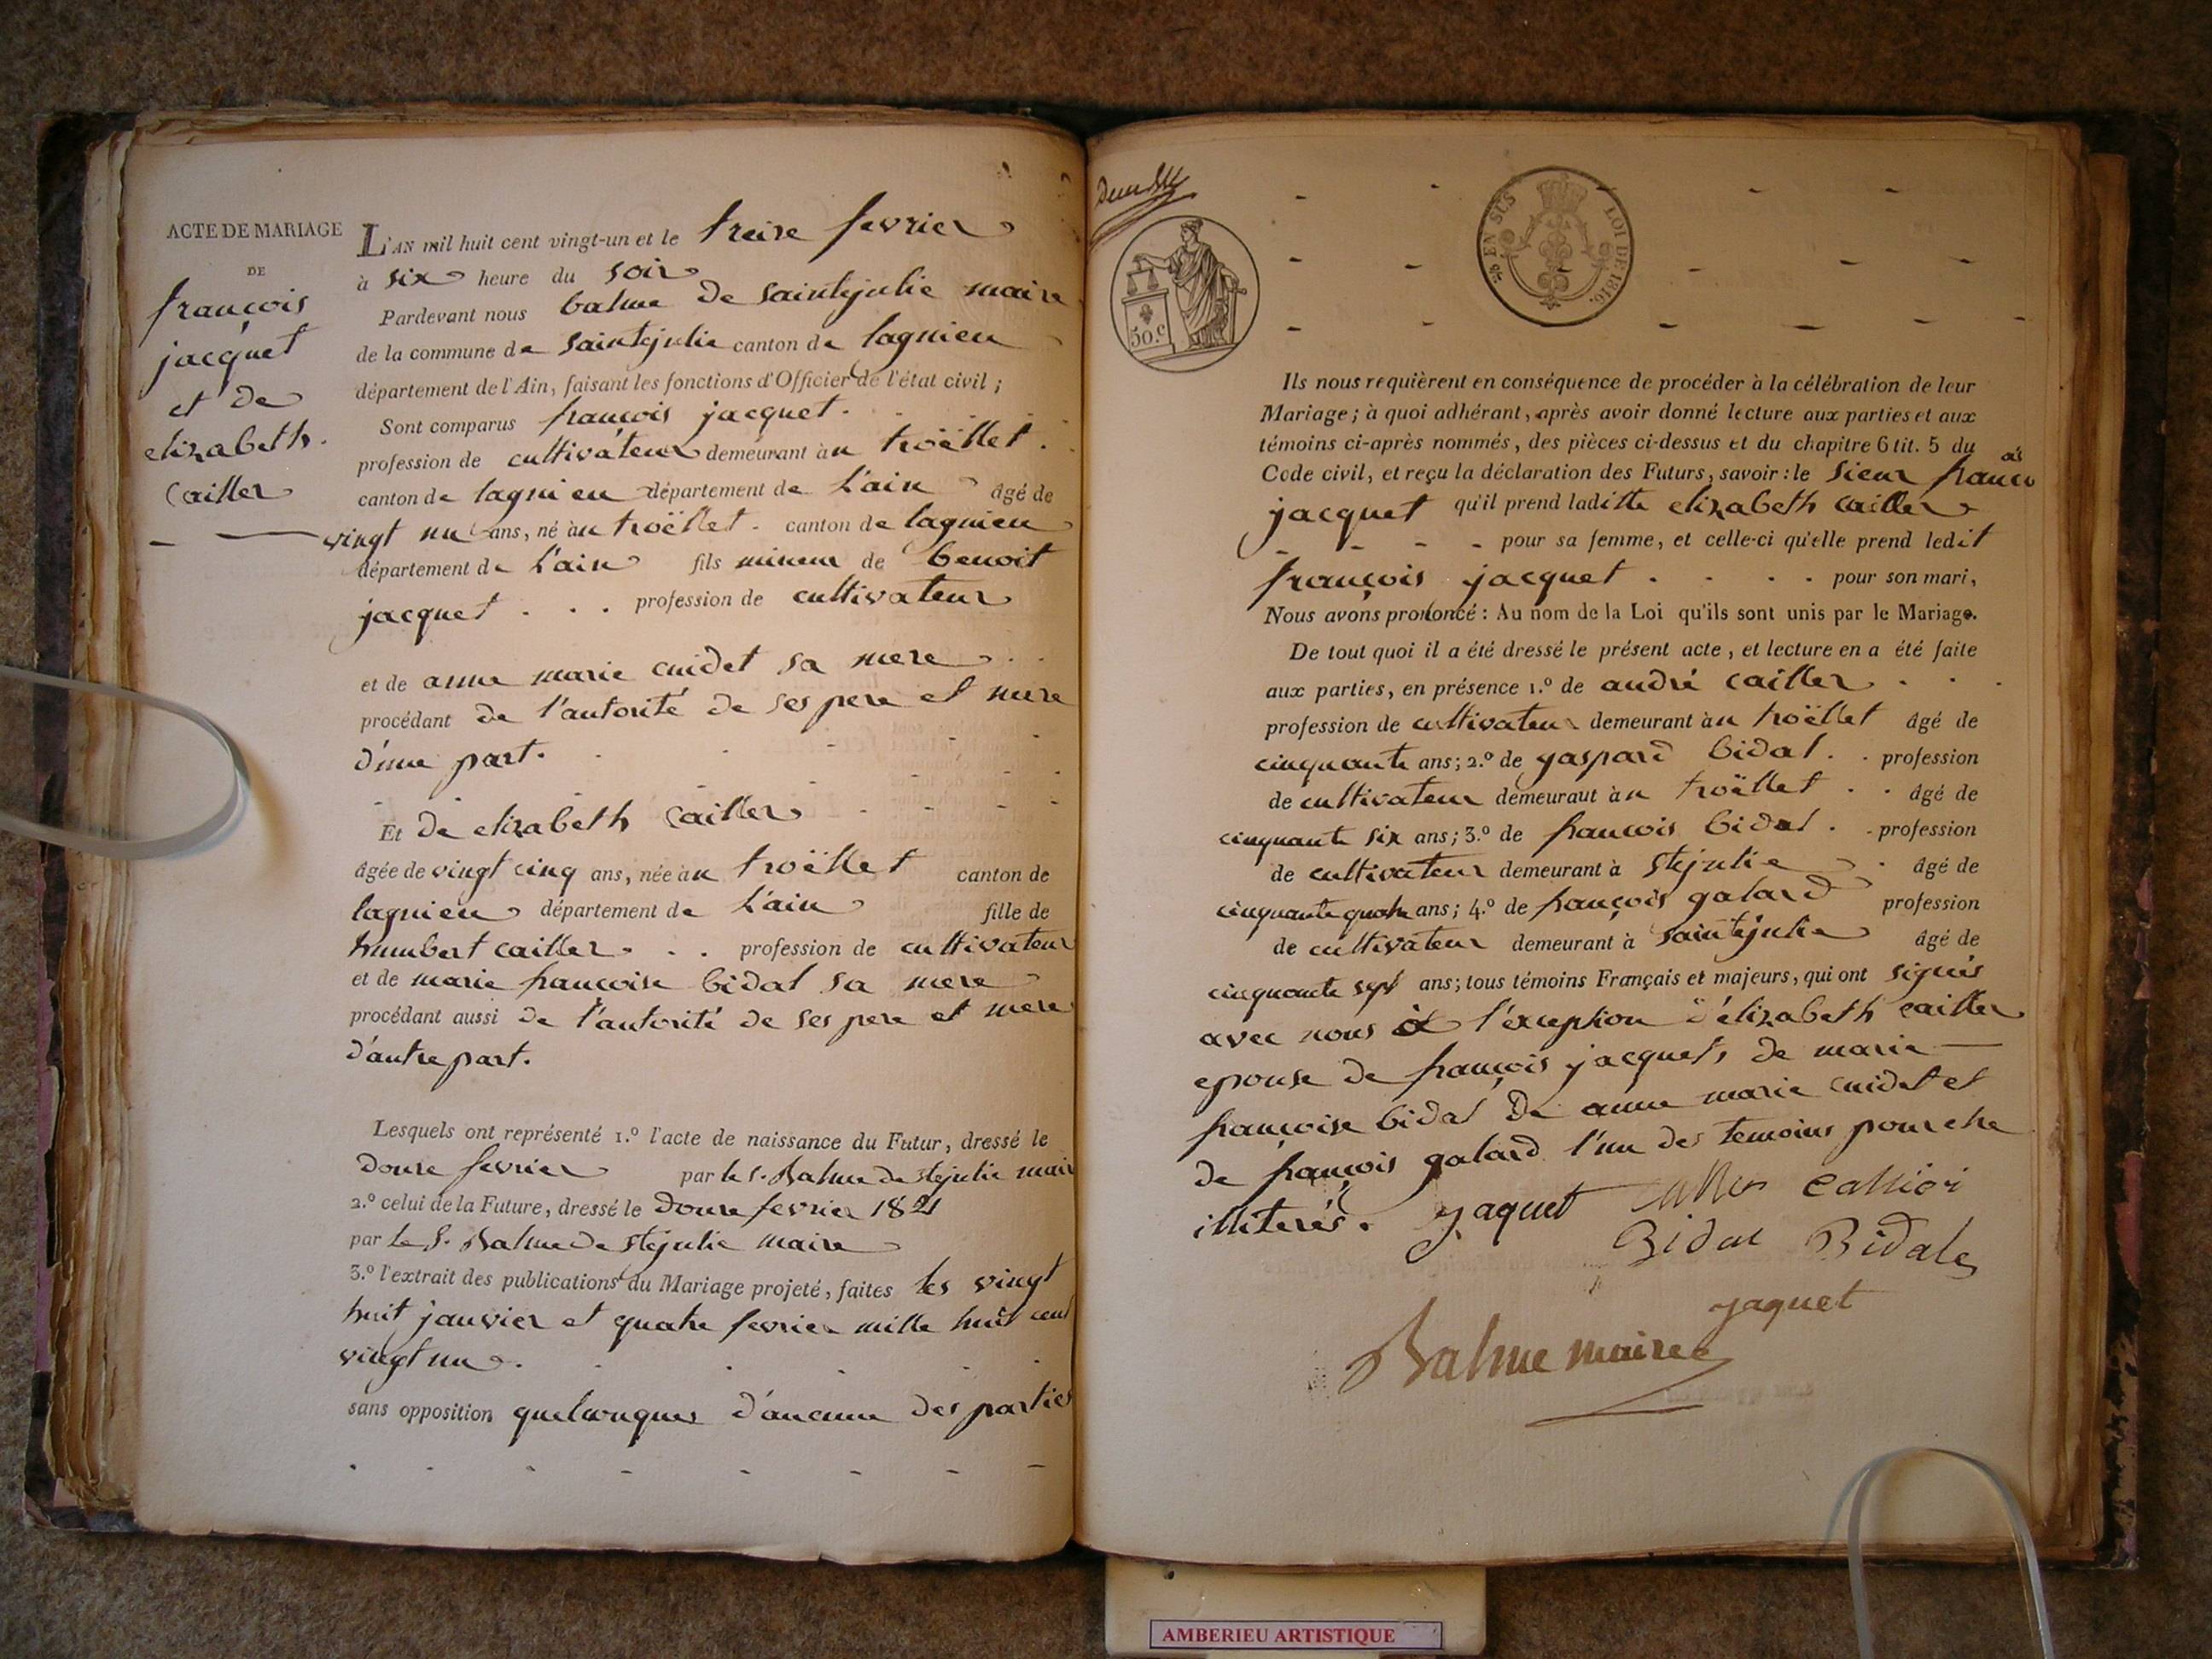 ACTE DE MARIAGE
DE
françois
jacquet
et de
elizabeth
cailler
L'AN mil huit cent vingt-un et le treize fevrier
à six heure du soir
Pardevant nous balme de saintejulie maire
de la commune de saintejulie canton de lagnieu
département de l'Ain, faisant les fonctions d'Officier de l'état civil ;
Sont comparus françois jacquet
profession de cultivateur demeurant àu troëllet
canton de lagnieu département de l'ain âgé de
vingt un ans, né àu troëllet canton de lagnieu
département de l'ain fils mineur de benoit
jacquet profession de cultivateur
et de anne marie cuidet sa mere
procédant de l'autorité de ses pere et mere
d'une part.
Et de elizabeth cailler
âgée de vingt cinq ans, née àu troëllet canton de
lagnieu département de l'ain fille de
humbert cailler profession de cultivateur
et de marie francoise bidal sa mere
procédant aussi de l'autorité de ses pere et mere
d'autre part.
Lesquels ont représenté 1.º l'acte de naissance du Futur, dressé le
douze fevrier par le s. Balme de stejulie maire
2.º celui de la Future, dressé le douze fevrier 1821
par le s. Balme de stejulie maire
3.º l'extrait des publications du Mariage projeté, faites les vingt
huit janvier et quatre fevrier mille huit cent
vingt un.
sans opposition quelconques d'aucune des parties
EN SUS
LOI DE 1816.
50.c
Ils nous requièrent en conséquence de procéder à la célébration de leur
Mariage ; à quoi adhérant, après avoir donné lecture aux parties et aux
témoins ci-après nommés, des pièces ci-dessus et du chapitre 6 tit. 5 du
Code civil, et reçu la déclaration des Futurs, savoir : le sieur françois
jacquet qu'il prend laditte elizabeth cailler
pour sa femme, et celle-ci qu'elle prend ledit
françois jacquet pour son mari,
Nous avons prononcé : Au nom de la Loi qu'ils sont unis par le Mariage.
De tout quoi il a été dressé le présent acte, et lecture en a été faite
aux parties, en présence 1.º de andré cailler
profession de cultivateur demeurant àu troëllet âgé de
cinquante ans ; 2.º de gaspard bidal profession
de cultivateur demeurant àu troëllet âgé de
cinquante six ans ; 3.º de francois bidal profession
de cultivateur demeurant à stejulie âgé de
cinquante quatre ans ; 4.º de françois galard profession
de cultivateur demeurant à saintejulie âgé de
cinquante sept ans ; tous témoins Français et majeurs, qui ont signés
avec nous à l'exception d'élizabeth cailler
epouse de françois jacquet, de marie
françoise bidal de anne marie cuidet et
de françois galard l'un des temoins pour etre
illiterés. jaquet
Bidal Bidale
jaquet
Balme maire
AMBERIEU ARTISTIQUE